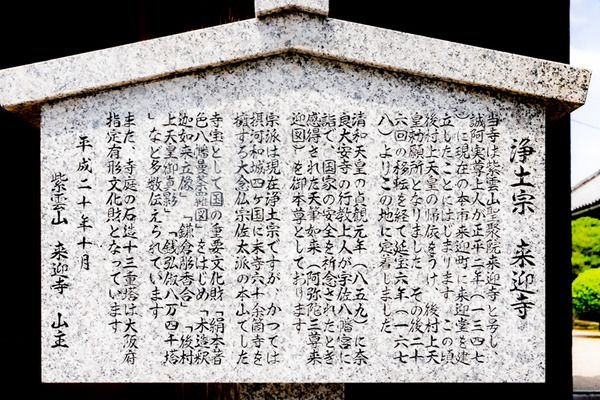 浄土宗 来迎寺
当寺は紫雲山聖聚院来迎寺と号し、
誠阿実尊上人が正平二年(一三四七
)に現在の本市来迎町に来迎堂を建
立したことにはじまります この頃
後村上天皇の帰依をうけ、後村上天
皇勅願所となりました その後二十
六回の移転を経て延宝六年(一六七
八)よりこの地に定着しました
清和天皇の貞観元年(八五九)に奈
良大安寺の行教上人が宇佐八幡宮に
詣で、国家の安全を祈念されたとき
感得された天筆如来(阿弥陀三尊来
迎図)を御本尊としております
宗派は現在浄土宗ですが、かつては
摂河和城四ケ国に末寺六十余箇寺を
擁する大念仏宗佐太派の本山でした
寺宝として国の重要文化財「絹本着
色八幡曼荼羅図」をはじめ「木造釈
迦如来立像」「鎌倉彫香合」「後村
上天皇御真影」「銭弘俶八万四千塔
」など多数伝えられています
また、寺庭の石造十三重塔は大阪府
指定有形文化財となっています
平成二十年十月
紫雲山 来迎寺 山主